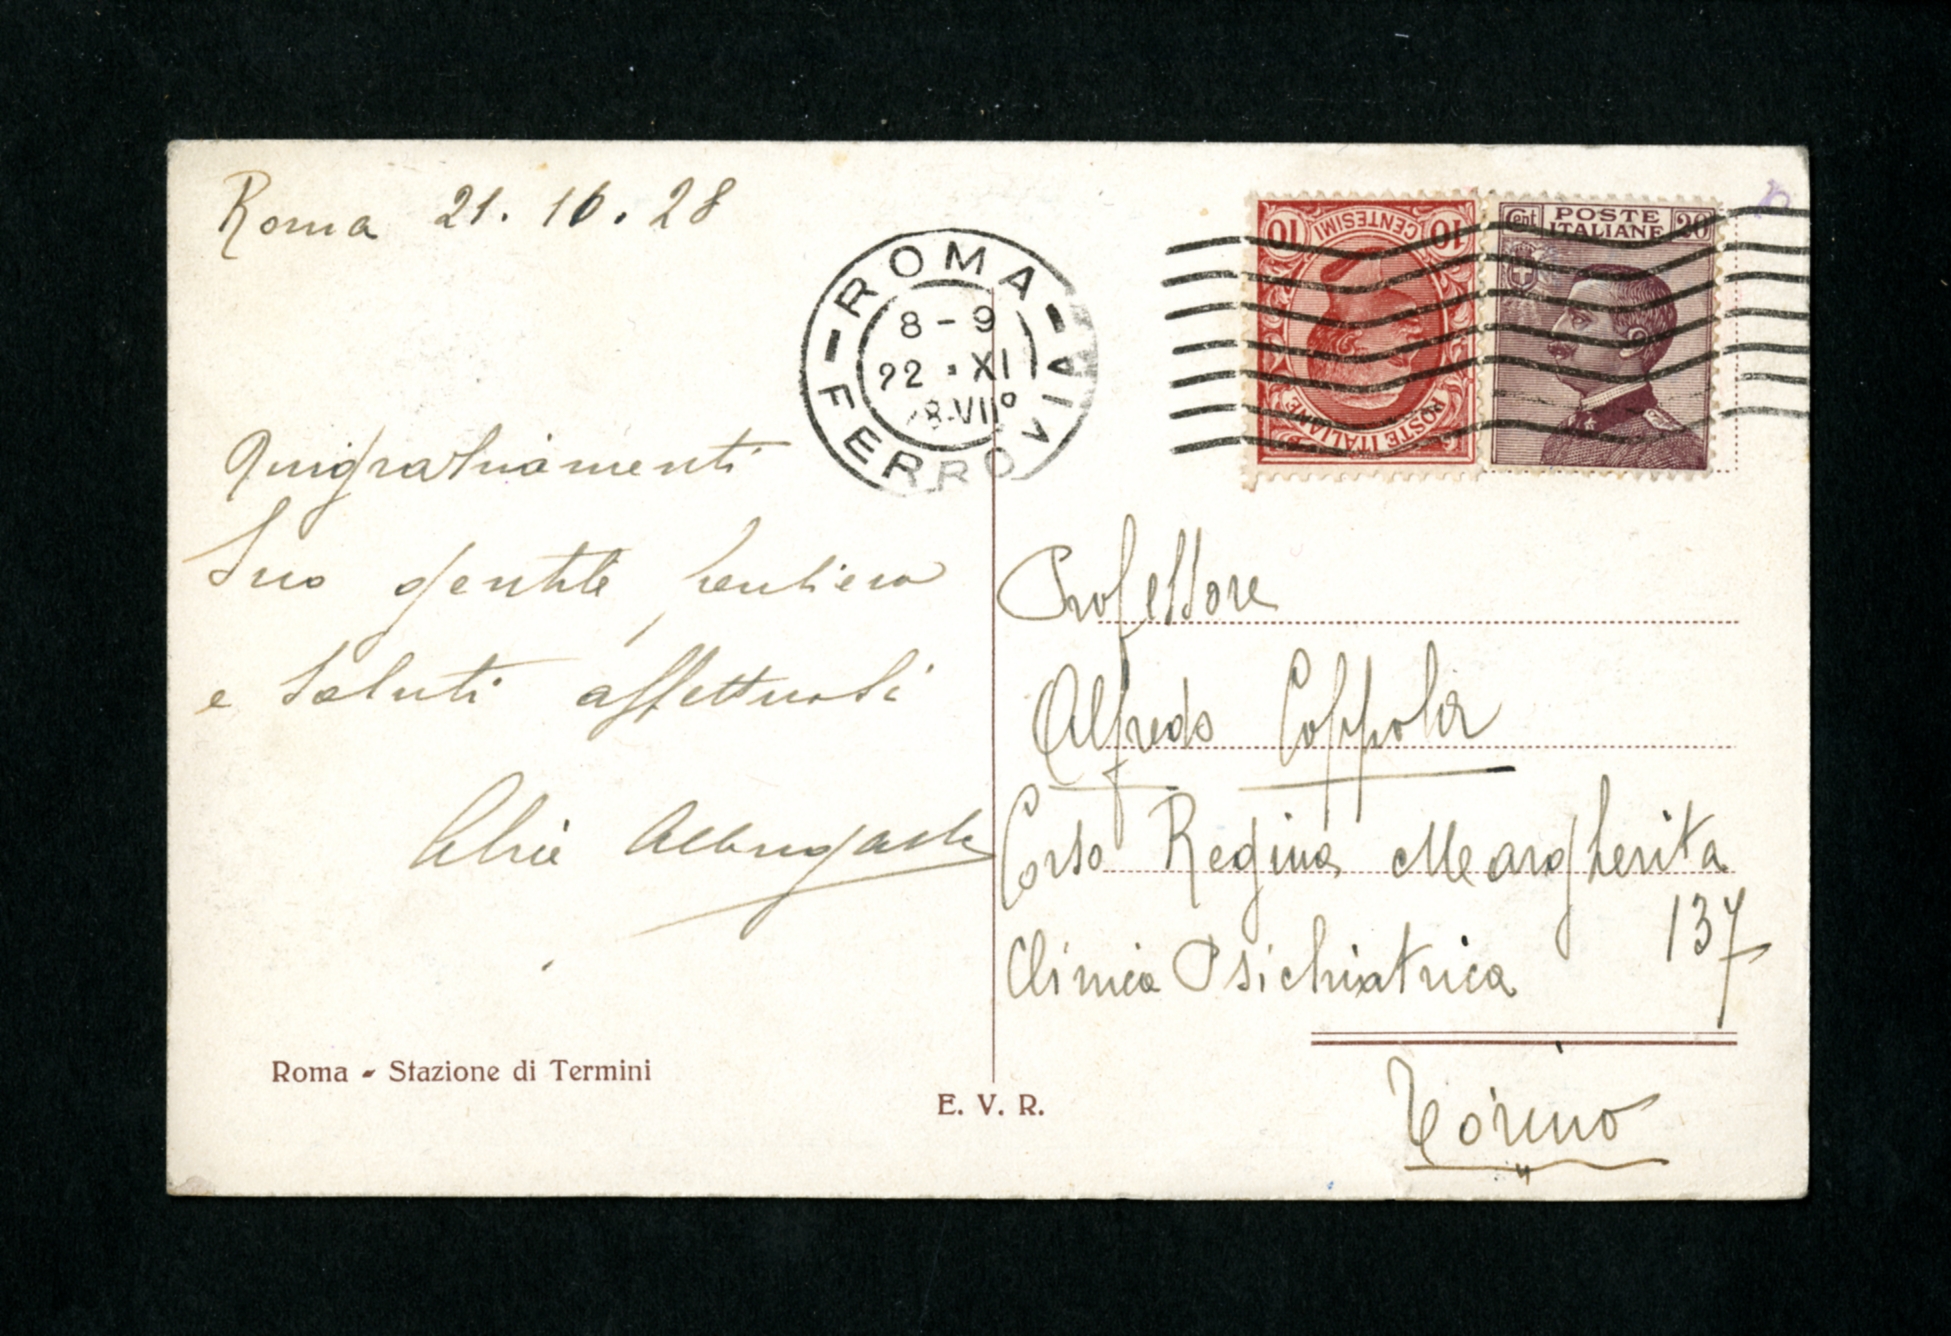 Roma 21. 10. 28
ROMA
FERROVIA
8-9
22 • XI
28-VII°
10 CENTESIMI 10
POSTE ITALIANE
Cent POSTE ITALIANE 20
Suo gentile pensiero
e saluti affettuosi
Professore
Alfredo Coppola
Corso Regina Margherita
137
Clinica Psichiatrica
Torino
Roma - Stazione di Termini
E. V. R.